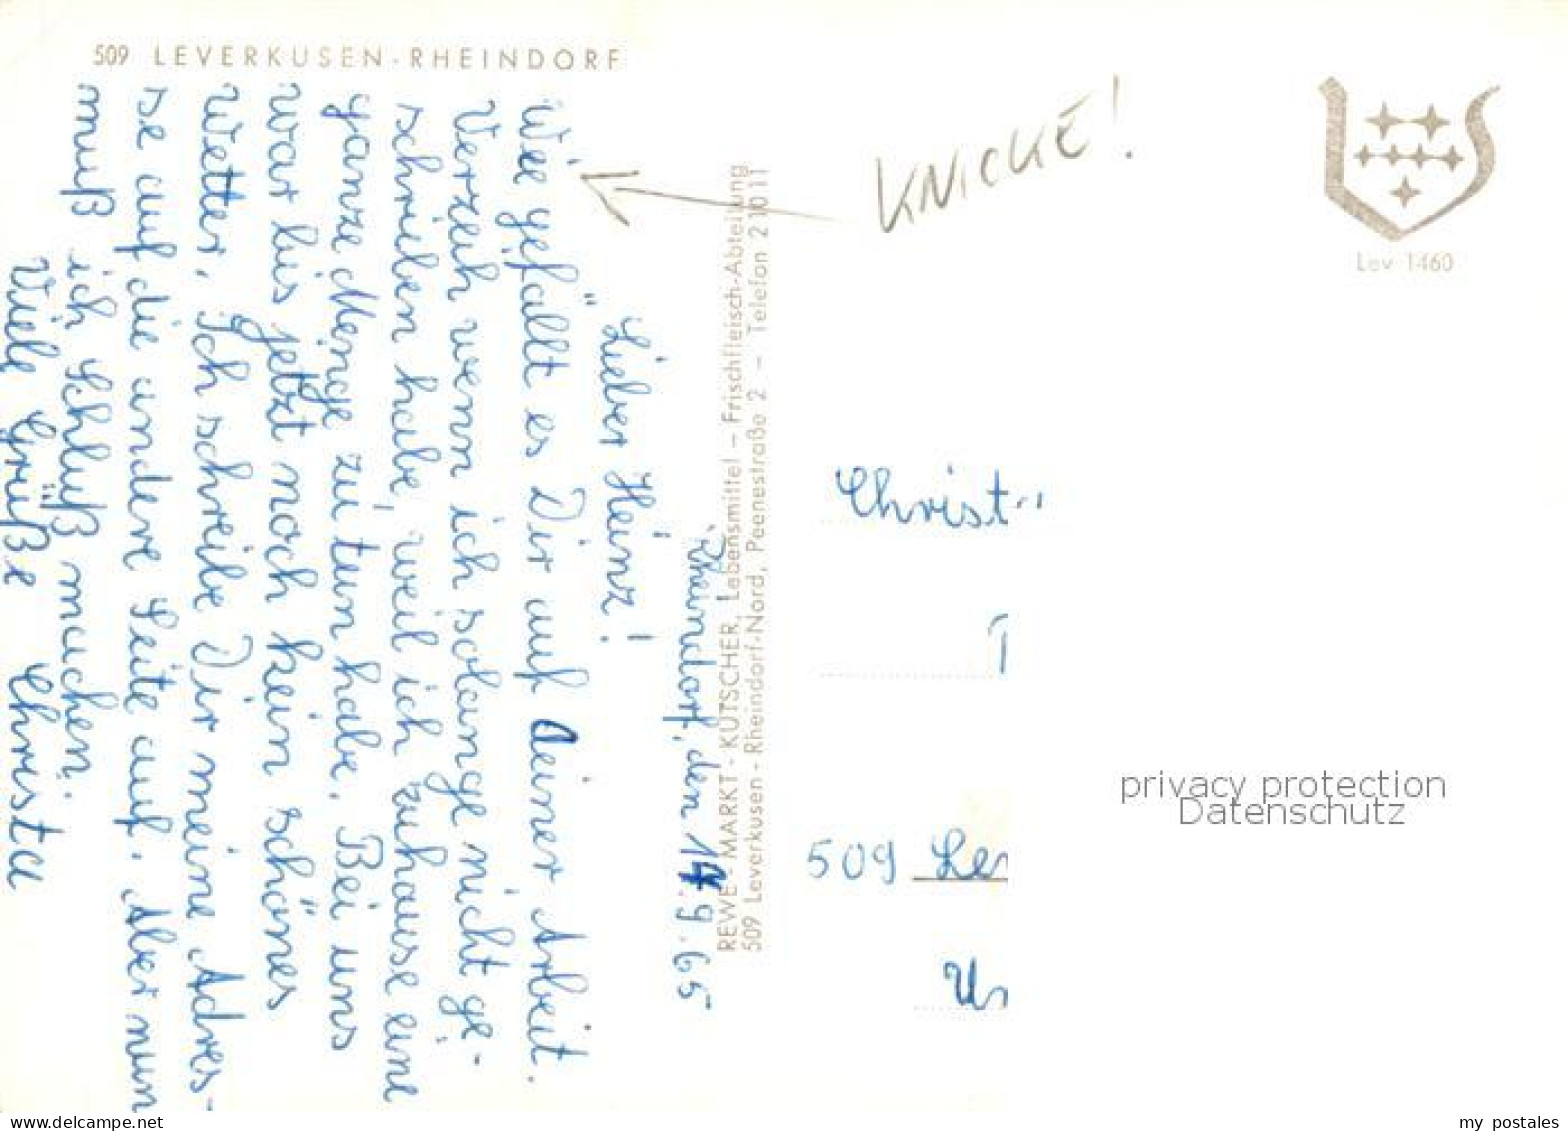 509 LEVERKUSEN-RHEINDORF
Rheindorf, den 14.9.65
Lieber Heinz!
Wie gefällt es Dir auf Deiner Arbeit.
Verzeih wenn ich solange nicht ge-
schrieben habe, weil ich zuhause eine
ganze Menge zu tun habe. Bei uns
war bis jetzt noch kein schönes
Wetter. Ich schreibe Dir meine Adres-
se auf die andere Seite auf. Aber nun
muß ich Schluß machen.
Viele Grüße Christa
REWE-MARKT-KUTSCHER, Lebensmittel – Frischfleisch-Abteilung
509 Leverkusen-Rheindorf-Nord, Peenestraße 2 – Telefon 21011
KNICKE!
Lev 1460
Christ
509 Le
privacy protection
Datenschutz
www.delcampe.net
my_postales